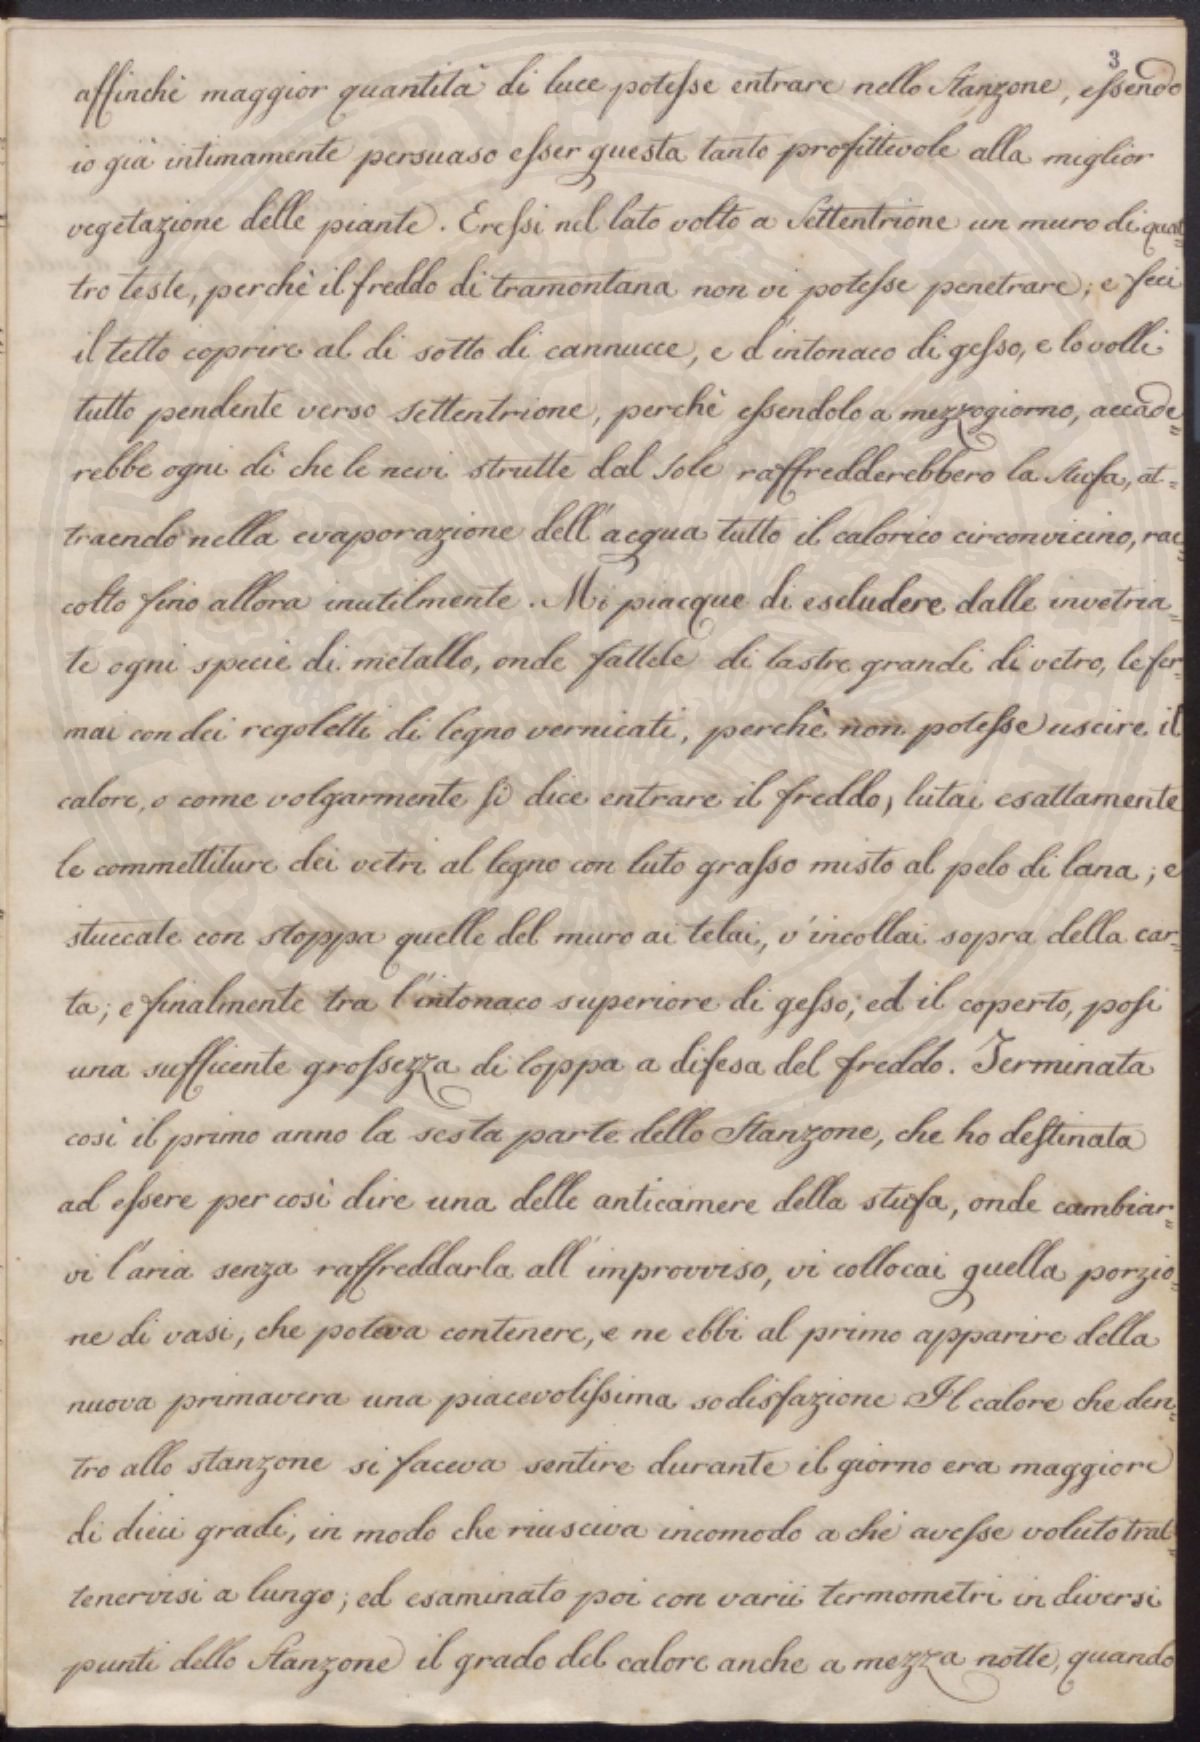 3
affinchè maggior quantità di luce potesse entrare nello Stanzone, essendo
io già intimamente persuaso esser questa tanto profittevole alla miglior
vegetazione delle piante. Eressi nel lato volto a Settentrione un muro di quat=
tro teste, perchè il freddo di tramontana non vi potesse penetrare; e feci
il tetto coprire al di sotto di cannucce, e d'intonaco di gesso, e lo volli
tutto pendente verso settentrione, perchè essendolo a mezzogiorno, accade=
rebbe ogni dì che le nevi strutte dal Sole raffredderebbero la Stufa, at=
traendo nella evaporazione dell'acqua tutto il calorico circonvicino, rac=
colto fino allora inutilmente. Mi piacque di escludere dalle invetria=
te ogni specie di metallo, onde fattele di lastre grandi di vetro, le fer=
mai con dei regoletti di legno vernicati, perchè non potesse uscire il
calore, o come volgarmente si dice entrare il freddo, lutai esattamente
le commettiture dei vetri al legno con luto grasso misto al pelo di lana; e
stuccate con stoppa quelle del muro ai telai, v'incollai sopra della car=
ta; e finalmente tra l'intonaco superiore di gesso, ed il coperto, posi
una sufficente grossezza di loppa a difesa del freddo. Terminata
così il primo anno la sesta parte dello Stanzone, che ho destinata
ad essere per così dire una delle anticamere della stufa, onde cambiar=
vi l'aria senza raffreddarla all'improvviso, vi collocai quella porzio=
ne di vasi, che poteva contenere, e ne ebbi al primo apparire della
nuova primavera una piacevolissima sodisfazione Il calore che den=
tro allo stanzone si faceva sentire durante il giorno era maggiore
di dieci gradi, in modo che riusciva incomodo a chi avesse voluto trat=
tenervisi a lungo; ed esaminato poi con varii termometri in diversi
punti dello Stanzone il grado del calore anche a mezza notte, quando